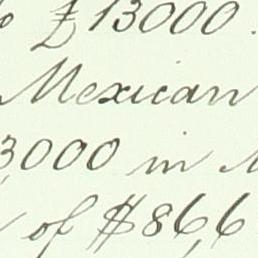 £13000.
Mexican
3,000 in
of $86,6